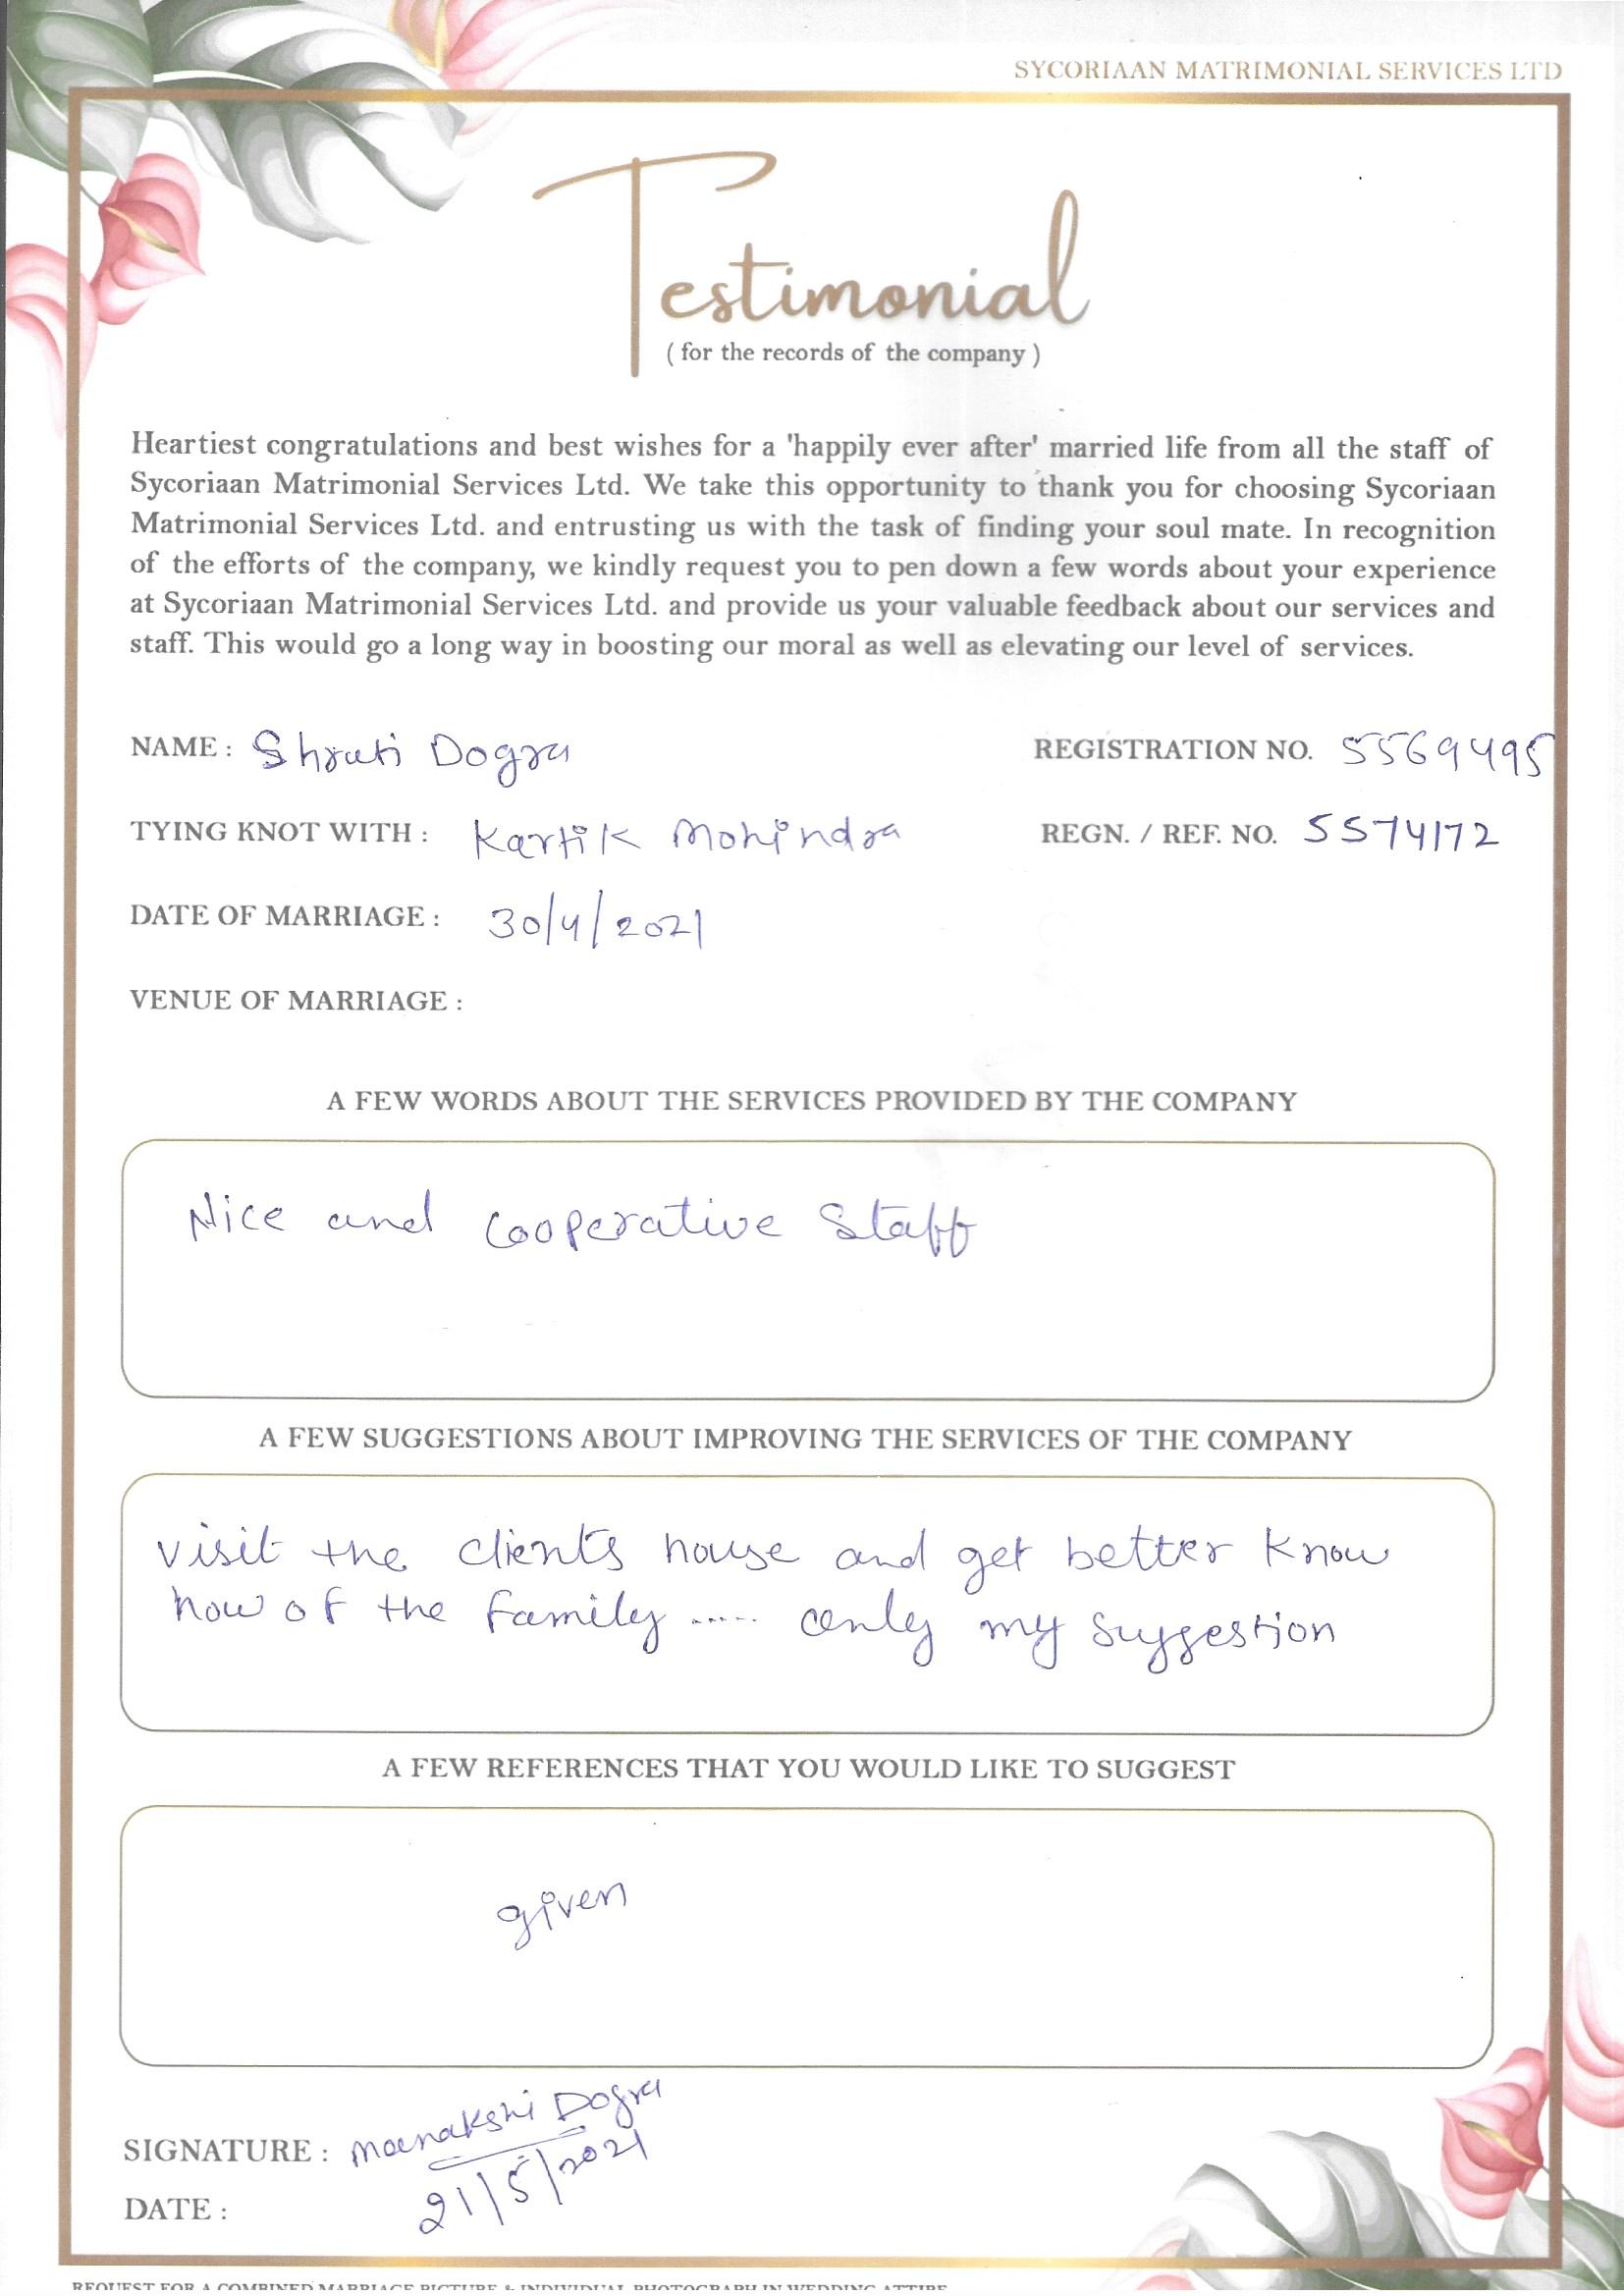 SYCORIAAN MATRIMONIAL SERVICES LTD
Testimonial
( for the records of the company )
Heartiest congratulations and best wishes for a 'happily ever after' married life from all the staff of
Sycoriaan Matrimonial Services Ltd. We take this opportunity to thank you for choosing Sycoriaan
Matrimonial Services Ltd. and entrusting us with the task of finding your soul mate. In recognition
of the efforts of the company, we kindly request you to pen down a few words about your experience
at Sycoriaan Matrimonial Services Ltd. and provide us your valuable feedback about our services and
staff. This would go a long way in boosting our moral as well as elevating our level of services.
NAME : Shruti Dogra REGISTRATION NO. 5569495
TYING KNOT WITH : Kartik Mohindra REGN. / REF. NO. 5574172
DATE OF MARRIAGE : 30/4/2021
VENUE OF MARRIAGE :
A FEW WORDS ABOUT THE SERVICES PROVIDED BY THE COMPANY
Nice and Cooperative Staff
A FEW SUGGESTIONS ABOUT IMPROVING THE SERVICES OF THE COMPANY
visit the clients house and get better know
how of the family ..... only my suggestion
A FEW REFERENCES THAT YOU WOULD LIKE TO SUGGEST
given
SIGNATURE : Meenakshi Dogra
DATE : 21/5/2021
REQUEST FOR A COMBINED MARRIAGE PICTURE & INDIVIDUAL PHOTOGRAPH IN WEDDING ATTIRE